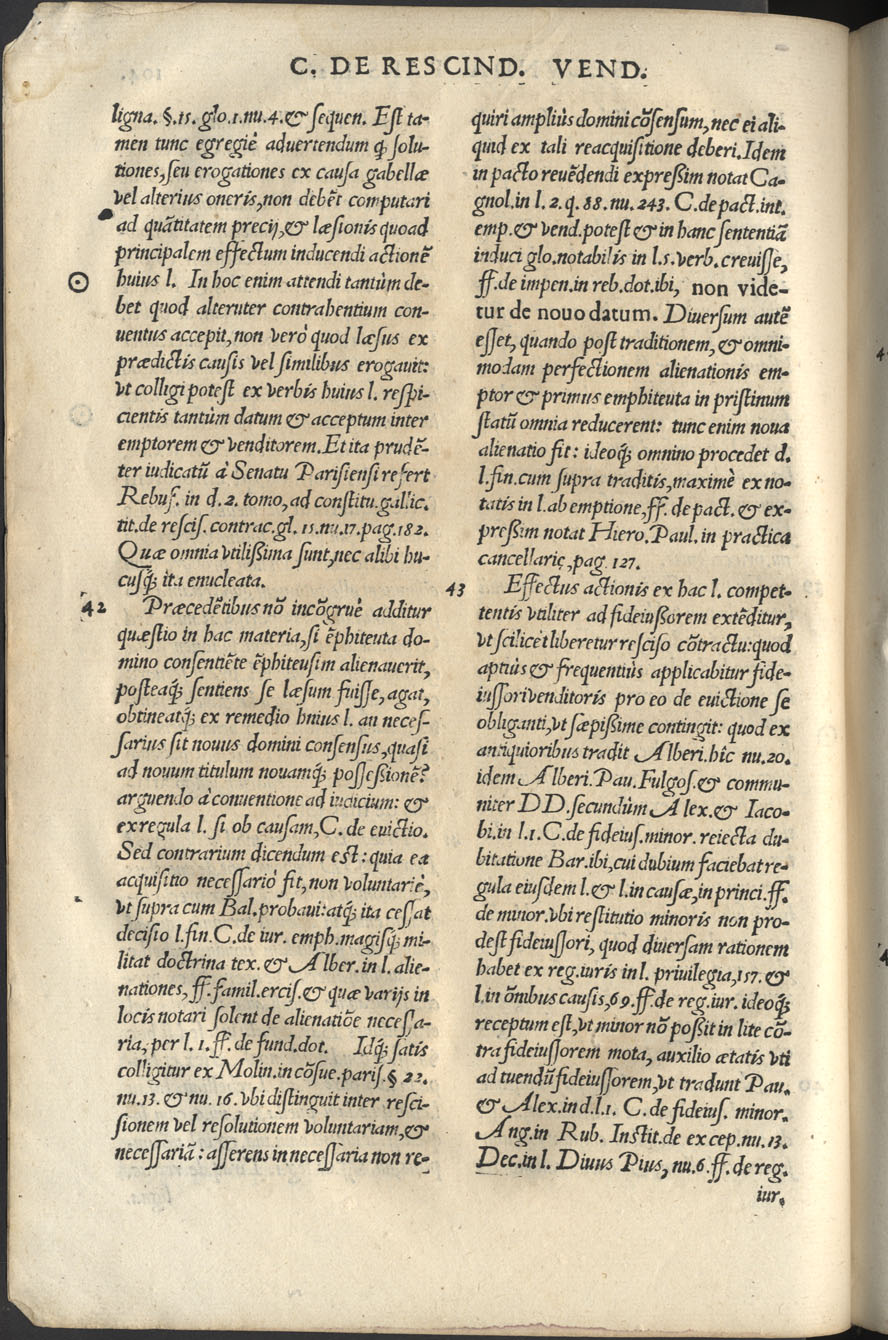 C. DE RESCIND. VEND.
ligna. §.15. glo.1.nu.4.& sequen. Est ta-
men tunc egregiè aduertendum q̃ solu-
tiones, seu erogationes ex causa gabellæ
vel alterius oneris, non debẽt computari
ad quãtitatem precij, & læsionis quoad
principalem effectum inducendi actionẽ
huius l. In hoc enim attendi tantùm de-
bet quod alteruter contrahentium con-
uentus accepit, non verò quod læsus ex
prædictis causis vel similibus erogauit:
vt colligi potest ex verbis huius l. respi-
cientis tantùm datum & acceptum inter
emptorem & venditorem. Et ita prudẽ-
ter iudicatũ à Senatu Parisiensi refert
Rebuf. in d. 2. tomo, ad constitu. gallic.
tit. de rescis. contrac. gl. 15. nu. 17. pag. 182.
Quæ omnia vtilißima sunt, nec alibi hu-
cusq́; ita enucleata.
42 Præcedẽtibus nõ incõgruè additur
quæstio in hac materia, si ẽphiteuta do-
mino consentiẽte ẽphiteusim alienauerit,
posteaq́; sentiens se læsum fuisse, agat,
obtineatq́; ex remedio hnius l. an neces-
sarius sit nouus domini consensus, quasi
ad nouum titulum nouamq́; possessionẽ?
arguendo à conuentione ad iudicium: &
ex regula l. si ob causam, C. de euictio.
Sed contrarium dicendum est: quia ea
acquisitio necessariò fit, non voluntariè,
vt supra cum Bal. probaui: atq́; ita cessat
decisio l. fin. C. de iur. emph. magisq́; mi-
litat doctrina tex. & Alber. in l. alie-
nationes, ff. famil. ercis. & quæ varijs in
locis notari solent de alienatiõe necessa-
ria, per l. 1. ff. de fund. dot. Idq́; satis
colligitur ex Molin. in cõsue. paris. § 22.
nu. 13. & nu. 16. vbi distinguit inter resci-
sionem vel resolutionem voluntariam, &
necessariã: asserens in necessaria non re-
quiri ampliùs domini cõsensum, nec ei ali-
quid ex tali reacquisitione deberi. Idem
in pacto reuẽdendi expreßim notat Ca-
gnol. in l. 2. q. 88. nu. 243. C. de pact. int.
emp. & vend. potest & in hanc sententiã
induci glo. notabilis in l. 5. verb. creuisse,
ff. de impen. in reb. dot. ibi, non vide-
tur de nouo datum. Diuersum autẽ
esset, quando post traditionem, & omni-
modam perfectionem alienationis em-
ptor & primus emphiteuta in pristinum
statũ omnia reducerent: tunc enim noua
alienatio fit: ideoq́; omnino procedet d.
l. fin. cum supra traditis, maximè ex no-
tatis in l. ab emptione, ff. de pact. & ex-
preßim notat Hiero. Paul. in practica
cancellarię, pag. 127.
43 Effectus actionis ex hac l. compet-
tentis vtiliter ad fideiußorem extẽditur,
vt scilicet liberetur resciso cõtractu: quod
aptiùs & frequentiùs applicabitur fide-
iussori venditoris pro eo de euictione se
obliganti, vt sæpißime contingit: quod ex
antiquioribus tradit Alberi. hîc nu. 20.
idem Alberi. Pau. Fulgos. & commu-
niter DD. secundùm Alex. & Iaco-
bi. in l. 1. C. de fideius. minor. reiecta du-
bitatione Bar. ibi, cui dubium faciebat re-
gula eiusdem l. & l. in causæ, in princi. ff.
de minor. vbi restitutio minoris non pro-
dest fideiussori, quod diuersam rationem
habet ex reg. iuris in l. priuilegia, 157. &
l. in õnibus causis, 69. ff. de reg. iur. ideoq́;
receptum est, vt minor nõ poßit in lite cõ-
tra fideiussorem mota, auxilio ætatis vti
ad tuendũ fideiussorem, vt tradunt Pau.
& Alex. in d. l. 1. C. de fideius. minor.
Ang. in Rub. Instit. de excep. nu. 13.
Dec. in l. Diuus Pius, nu. 6. ff. de reg.
iur.